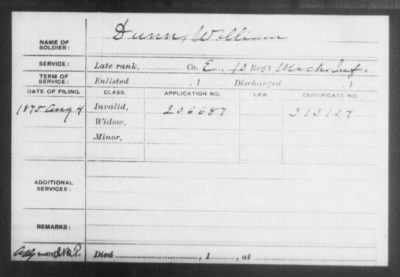 NAME OF SOLDIER: Dunn, William
SERVICE: Late rank, Co. E, 10 Reg't Mich. Inf.
TERM OF SERVICE: Enlisted , 1 Discharged , 1
DATE OF FILING. CLASS. APPLICATION NO. LAW. CERTIFICATE NO.
1875 Aug 4 Invalid, 206687 313127
Widow,
Minor,
ADDITIONAL SERVICES:
REMARKS:
Died , 1 , at